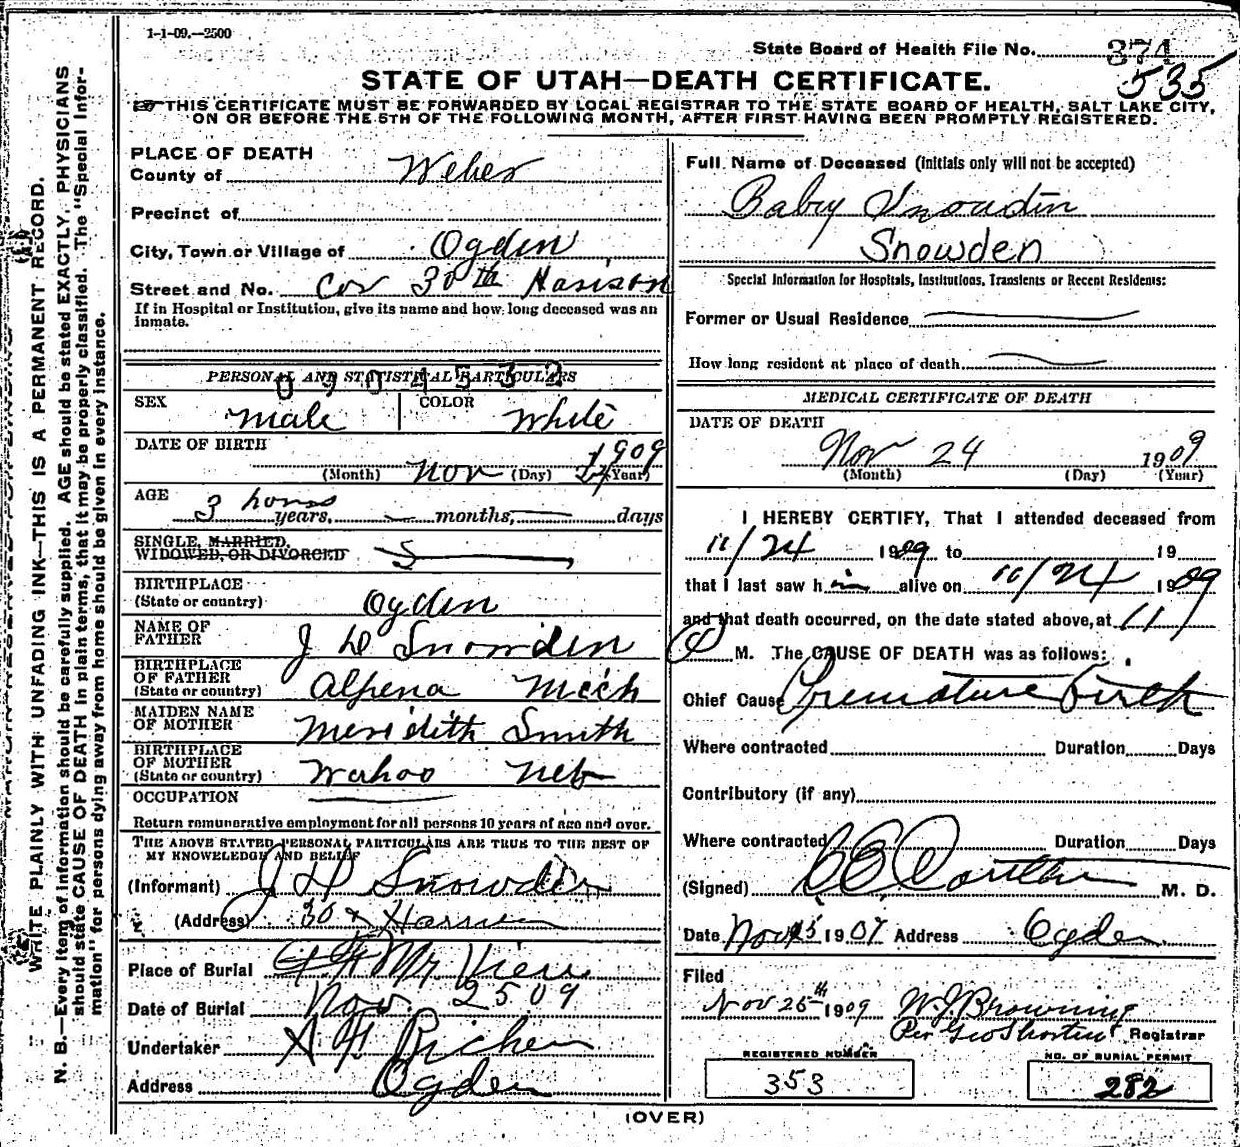 1-1-09.—2500
State Board of Health File No. 374
535
STATE OF UTAH—DEATH CERTIFICATE.
THIS CERTIFICATE MUST BE FORWARDED BY LOCAL REGISTRAR TO THE STATE BOARD OF HEALTH, SALT LAKE CITY,
ON OR BEFORE THE 5TH OF THE FOLLOWING MONTH, AFTER FIRST HAVING BEEN PROMPTLY REGISTERED.
WRITE PLAINLY WITH UNFADING INK—THIS IS A PERMANENT RECORD.
N. B.—Every item of information should be carefully supplied. AGE should be stated EXACTLY. PHYSICIANS
should state CAUSE OF DEATH in plain terms, that it may be properly classified. The "Special Infor-
mation" for persons dying away from home should be given in every instance.
PLACE OF DEATH
County of Weber
Precinct of
City, Town or Village of Ogden
Street and No. Cor 30th Harison
If in Hospital or Institution, give its name and how long deceased was an
inmate.
PERSONAL AND STATISTICAL PARTICULARS
SEX male COLOR White
DATE OF BIRTH 1909
(Month) Nov (Day) 24 (Year)
AGE 3 hours
years, months, days
SINGLE, MARRIED,
WIDOWED, OR DIVORCED S
BIRTHPLACE
(State or country) Ogden
NAME OF
FATHER J D Snowden
BIRTHPLACE
OF FATHER
(State or country) Alpena Mich
MAIDEN NAME
OF MOTHER Meridith Smith
BIRTHPLACE
OF MOTHER
(State or country) Wahoo Neb
OCCUPATION
Return remunerative employment for all persons 10 years of age and over.
THE ABOVE STATED PERSONAL PARTICULARS ARE TRUE TO THE BEST OF
MY KNOWLEDGE AND BELIEF
(Informant) J D Snowden
(Address) 30 & Harrison
Place of Burial Mt View
Date of Burial Nov 25 09
Undertaker
Address Ogden
Full Name of Deceased (Initials only will not be accepted)
Baby Snowdin
Snowden
Special Information for Hospitals, Institutions, Transients or Recent Residents:
Former or Usual Residence
How long resident at place of death
MEDICAL CERTIFICATE OF DEATH
DATE OF DEATH
Nov 24 1909
(Month) (Day) (Year)
I HEREBY CERTIFY, That I attended deceased from
11/24 1909 to 19
that I last saw him alive on 11/24 1909
and that death occurred, on the date stated above, at 11
P M. The CAUSE OF DEATH was as follows:
Chief Cause Premature Birth
Where contracted Duration Days
Contributory (if any)
Where contracted Duration Days
(Signed) M. D.
Date Nov 25 1909 Address Ogden
Filed
Nov 25th 1909 W J Browning
Per Geo Shorten Registrar
REGISTERED NUMBER
353
NO. OF BURIAL PERMIT
282
(OVER)